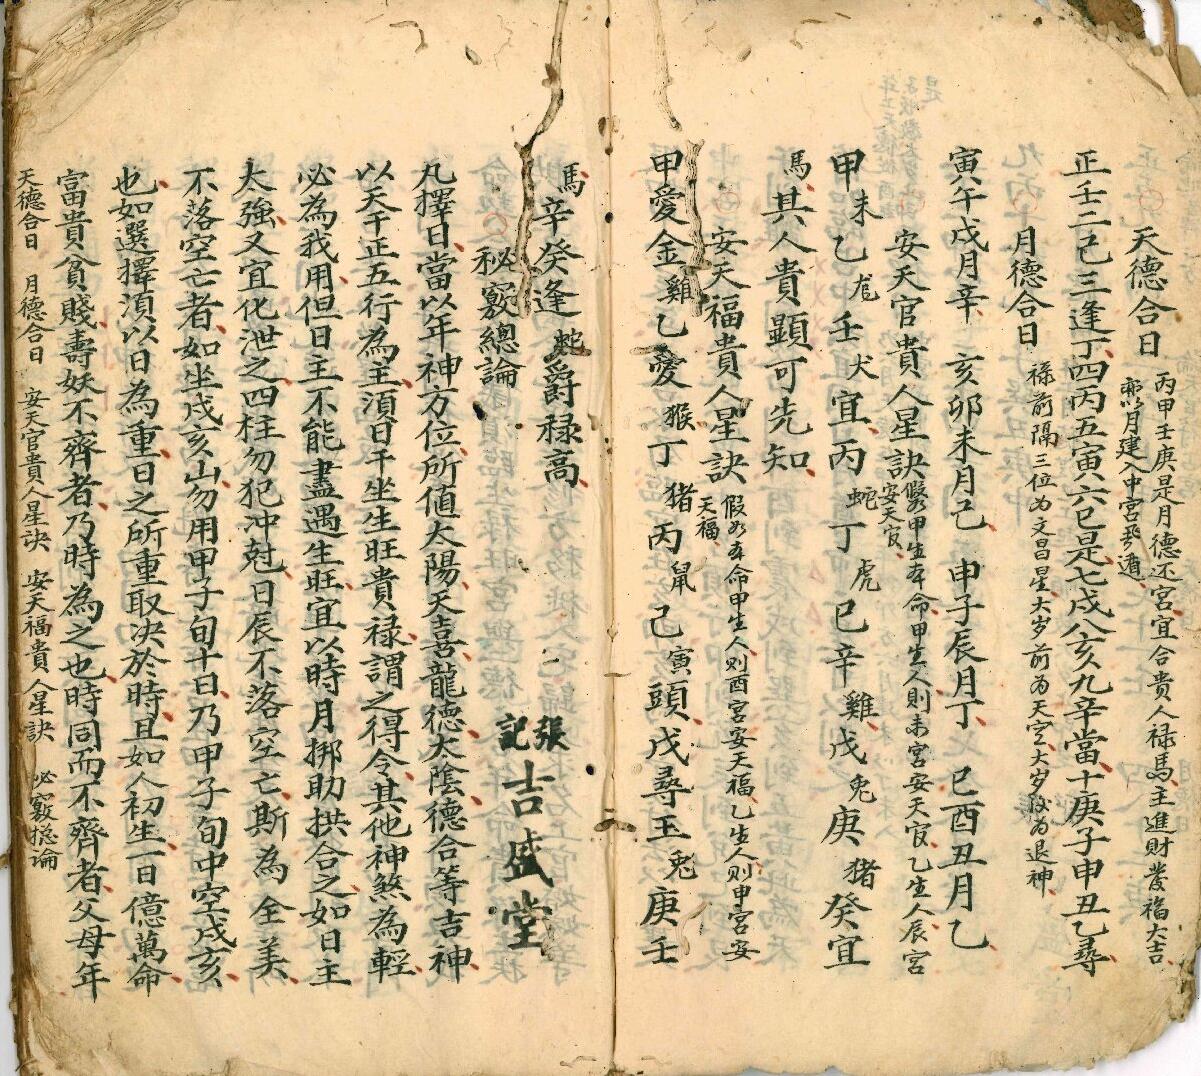 天德合日
丙甲壬庚是月德还宮宜合贵人禄馬主進財發福大吉
亦以月建入中宮飛遁
正壬二己三逢丁四丙五寅六巳是七戌八亥九辛當十庚子申丑乙尋
月德合日
禄前隔三位为文昌星大岁前为天空大岁後为退神
寅午戌月辛 亥卯未月己 申子辰月丁 巳酉丑月乙
安天官貴人星訣
假如甲生本命甲生人则未宮安天官乙生人辰宮
安天官
甲未乙虎壬犬宜丙蛇丁虎巳辛雞戊兔庚猪癸宜
馬其人貴顯可先知
安天福貴人星訣
假如本命甲生人则酉宮安天福乙生人则申宮安
天福
甲愛金雞乙愛猴丁猪丙鼠己寅頭戊尋玉兔庚壬
馬辛癸逢蛇爵禄高
秘竅總論
張記吉盛堂
凡擇日當以年神方位所值太陽天喜龍德太陰德合等吉神
以天干正五行為主須日干坐生旺貴禄謂之得令其他神煞為輕
必為我用但日主不能盡遇生旺宜以時月挪助拱合之如日主
太強又宜化泄之四柱勿犯冲尅日辰不落空亡斯為全美
不落空亡者如坐戌亥山勿用甲子旬十日乃甲子旬中空戌亥
也如選擇須以日為重日之所重取决於時且如人初生一日億萬命
富貴貧賤壽妖不齊者乃時為之也時同而不齊者父母年
天德合日 月德合日 安天官貴人星訣 安天福貴人星訣 必竅総論